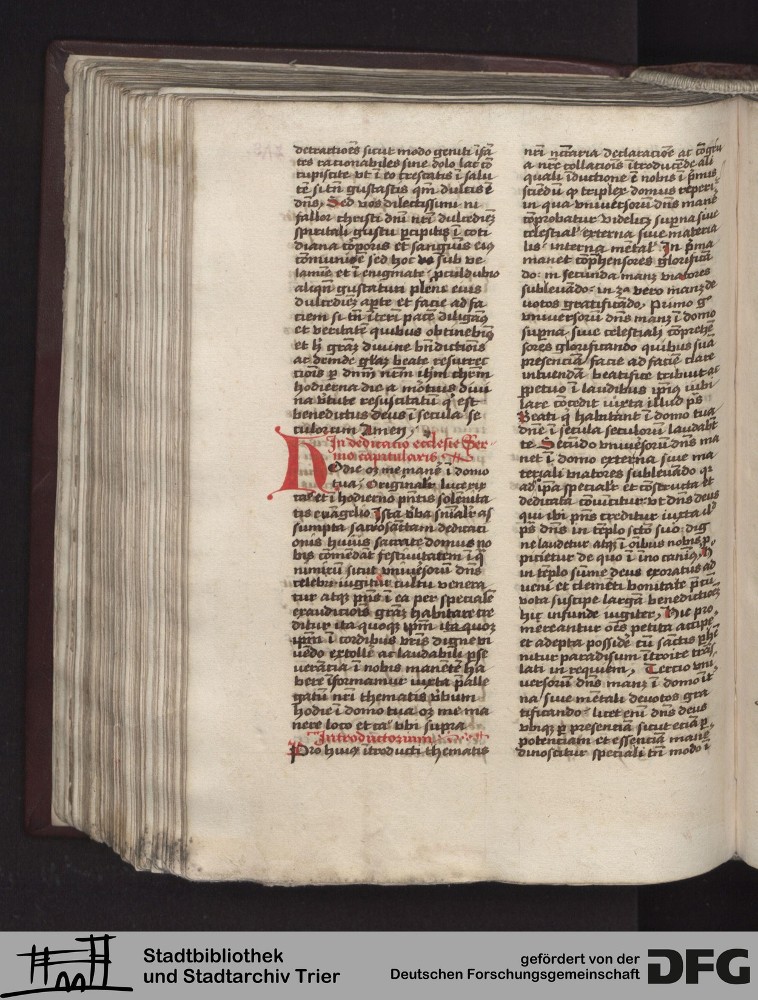 detractiones sicut modo geniti ifā
tes rationabiles sine dolo lac cō
cupiscite vt ī eo crescatis ī salu
tē si tn̄ gustastis qm̄ dulcis ē
dn̄s Sed vos dilectissimi ni
fallor christi dn̄i nr̄i dulcedieʒ
spiritali gustu pcipitis ī coti
diana corporis et sanguīs eiꝯ
cōmunione sed hoc sub ve
lamīe et ī enigmate procul dubio
aliqn̄ gustaturi plene eius
dulcedieʒ apte et facie ad fa
ciem si tn̄ īterī pacē diligāꝯ
et veritatē quibus obtinebimꝯ
et h̄ gr̄az divine bn̄dictiois
ac deinde gr̄az beate resurrec
tiois p dnm̄ nr̄m ihm̄ chr̄m
hodierna die a mōtuis divi
na vtute resuscitatū q est
benedictus deus ī secula se
culorum Amen
In dedicatio ecclesie Ser
mo capitularis
Hodie oʒ me manē ī domo
tua Originalr luce xix
caᵒ et ī hodierno pn̄tis solenita
tis evāgelio Ista vba sīnalr as
sumpta sacrosāctam dedicati
onis huiꝯ sacrate domus no
bis cōmēdāt festivitatem ī q̄
nimirū sicut vniuersorū dn̄s
celebri iugiter cultu venera
tur atqʒ pn̄s ī ea per specialē
exauditiois gr̄az habitare cre
ditur ita quoqʒ ipm̄
ipm̄ ī cordibus vr̄is digne vi
vēdo extolle ac laudabili pse
verātia ī nobis manētē ha
bere īformamur iuxta
nr̄i thematis vbum
hodie ī domo tua oʒ me ma
nere loco et caᵒ vbi supra
Introductorium
Pro huiꝯ ītroducti thematis
nr̄i necc̄aria declaracōe ac
a nr̄e collaciois ītroducēde ali
quali īductione ē nobis ī pmis
sciēdū qꝫ triplex domus reperi
in qua vniuersorū dn̄s manē
cōprobatur videlicʒ supna siue
celestial externa siue materia
lis interna mētal In pma
manet cōphensores glorificā
do in secunda manʒ viatores
subleuādo in 3a vero manʒ de
votos gratificādo Primo gᵒ
vniuersorū dn̄s manʒ ī domo
supna siue celestiali cōprehē
sores glorificando quibus suā
presenciā facie ad faciē clare
intuendā beatifice tribuit ac
ppetuo ī laudibus ipiꝯ iubi
lare cōcedit iuxta illud ps
Beati q habitant ī domo tua
dnē ī secula seculorū laudabt
te Secūdo vniuersorū dn̄s ma
net ī domo externa siue ma
teriali viatores subleuādo qi
ad ipā specialr et cōstructā et
dedicatā cōvincitur vt dn̄s deus
qui ibi pn̄s creditur iuxta il
ps dn̄s in tēplo scto suo dig
ne laudetur atqʒ ī oibus nobis p
picietur de quo ī īno canimꝯ
in tēplo sūme deus exoratus ad
veni et clemēti bonitate pcū
vota suscipe largā benedictiōeʒ
hic infunde iugiter Hic pro
mereantur oēs petita accipe
et adepta posside cū sāctis phē
nitur paradisum ītroire trās
lati in requiem Tercio vni
versorū dn̄s manʒ ī domo īt
na siue mētali devotos gra
tificando licet eni dn̄s deus
vbiqʒ p presenciā sicut eciā p
potenciam et essenciā manē
dinoscitur speciali tn̄ modo ī
Stadtbibliothek
und Stadtarchiv Trier
gefördert von der
Deutschen Forschungsgemeinschaft
DFG